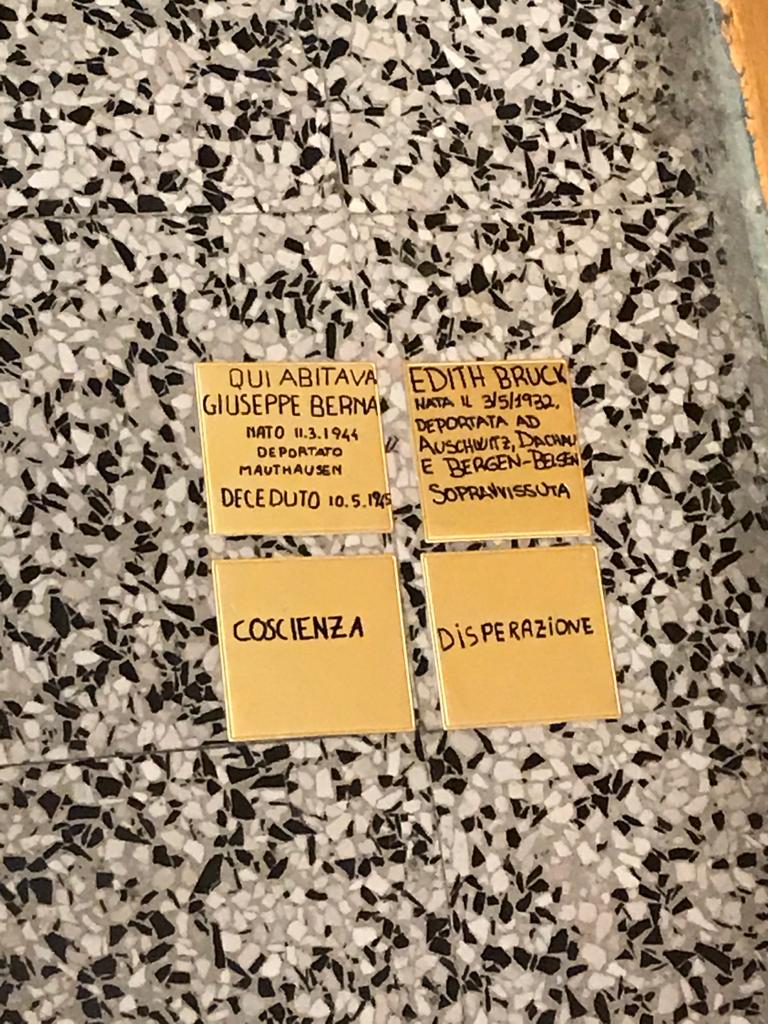 QUI ABITAVA
GIUSEPPE BERNA
NATO 11.3.1944
DEPORTATO
MAUTHAUSEN
DECEDUTO 10.5.1945
EDITH BRUCK
NATA IL 3/5/1932,
DEPORTATA AD
AUSCHWITZ, DACHAU
E BERGEN-BELSEN
SOPRAVVISSUTA
COSCIENZA
DISPERAZIONE